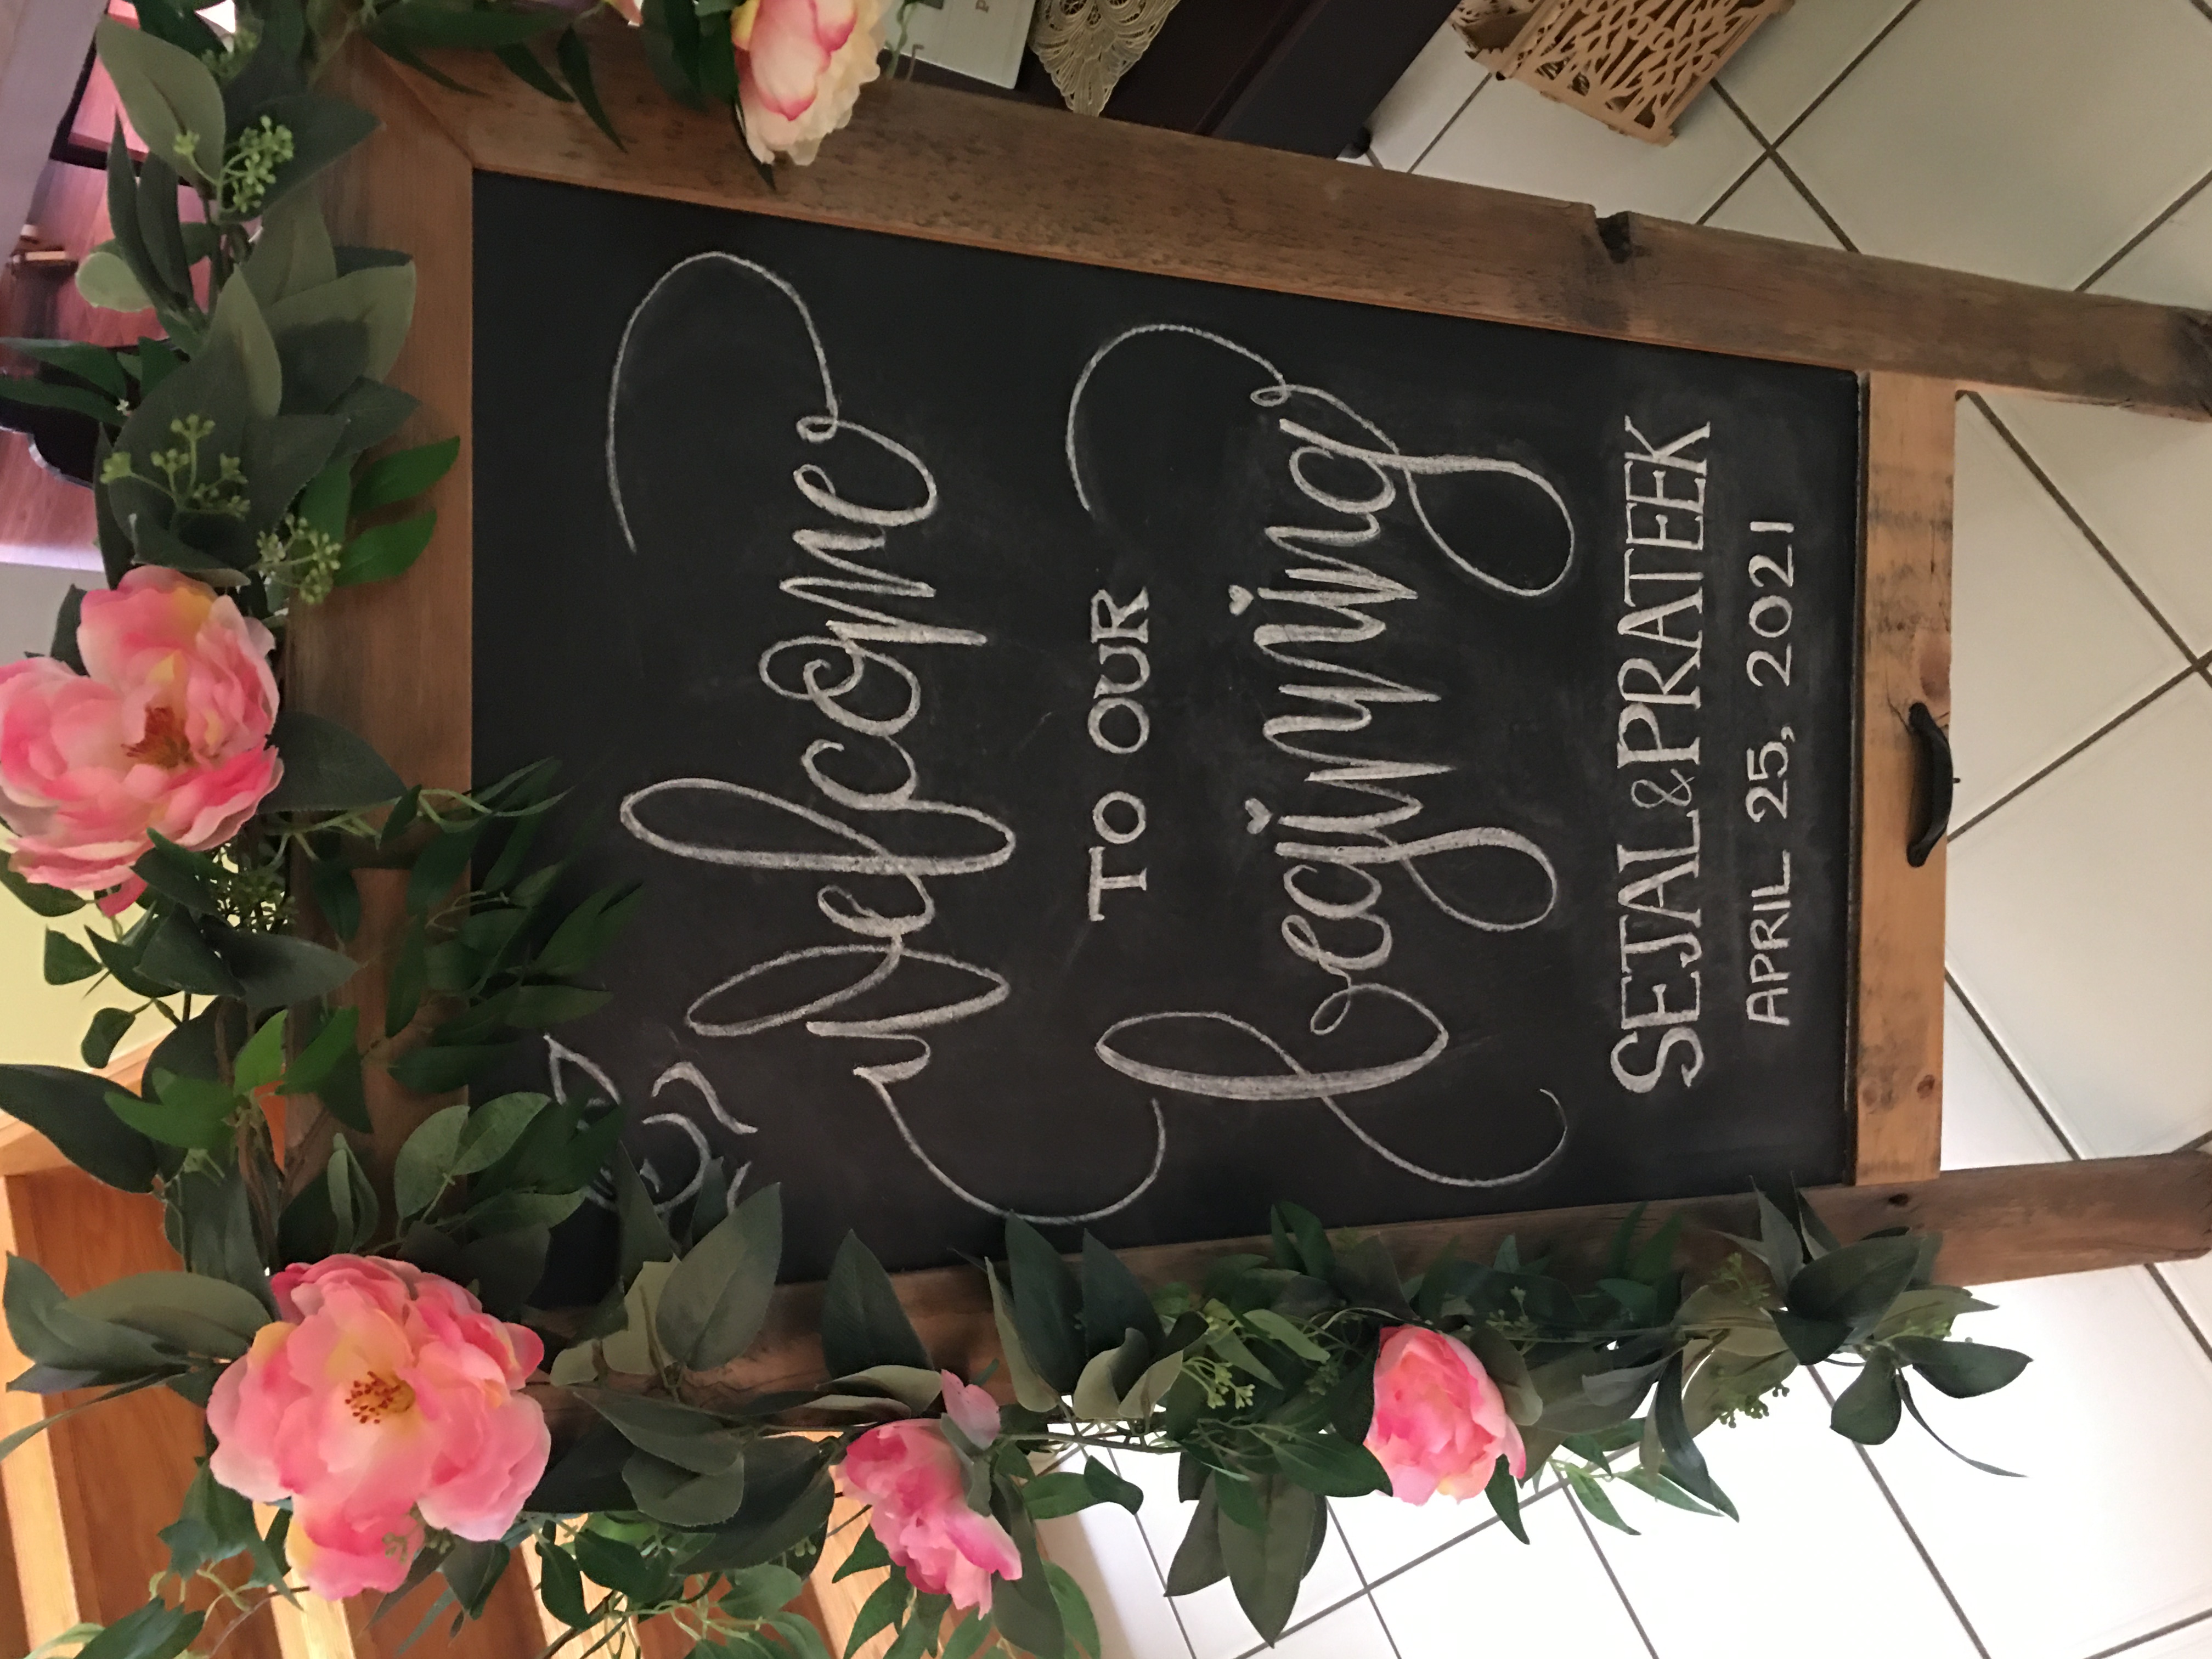 Welcome
TO OUR
beginning
SEJAL & PRATEEK
APRIL 25, 2021